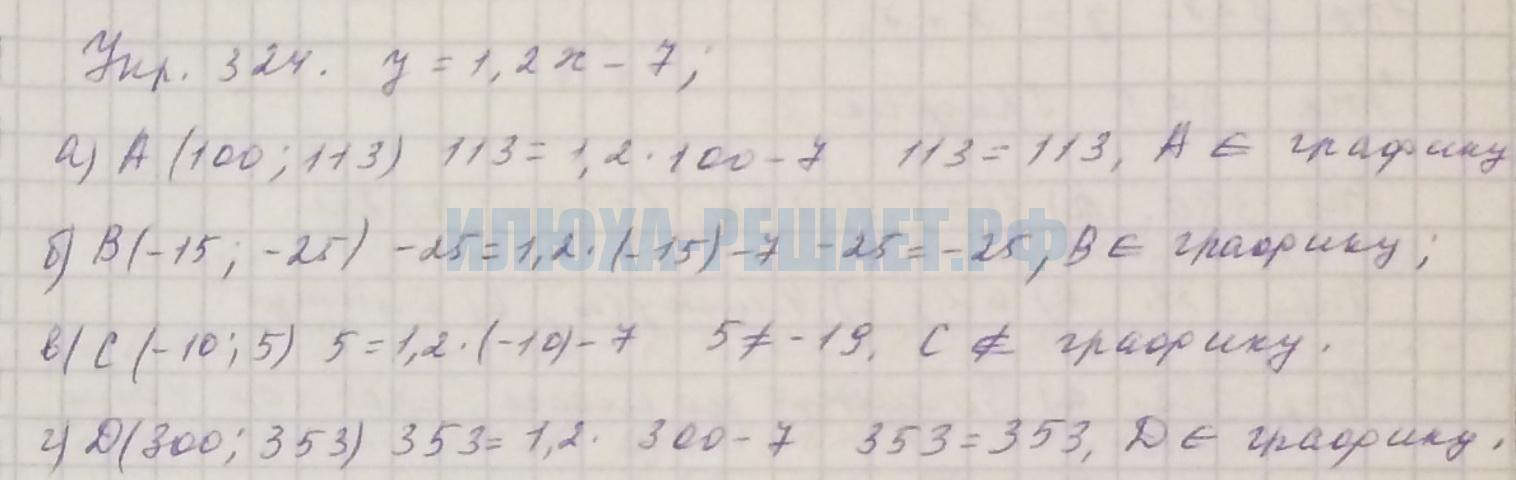 Упр. 324. y = 1,2x - 7;
а) A (100; 113) 113 = 1,2 · 100 - 7 113 = 113, A ∈ графику
ИЛЮХА-РЕШАЕТ.РФ
б) B(-15; -25) -25 = 1,2 · (-15) - 7 -25 = -25, B ∈ графику;
в) C (-10; 5) 5 = 1,2 · (-10) - 7 5 ≠ -19. C ∉ графику.
г) D(300; 353) 353 = 1,2 · 300 - 7 353 = 353, D ∈ графику.